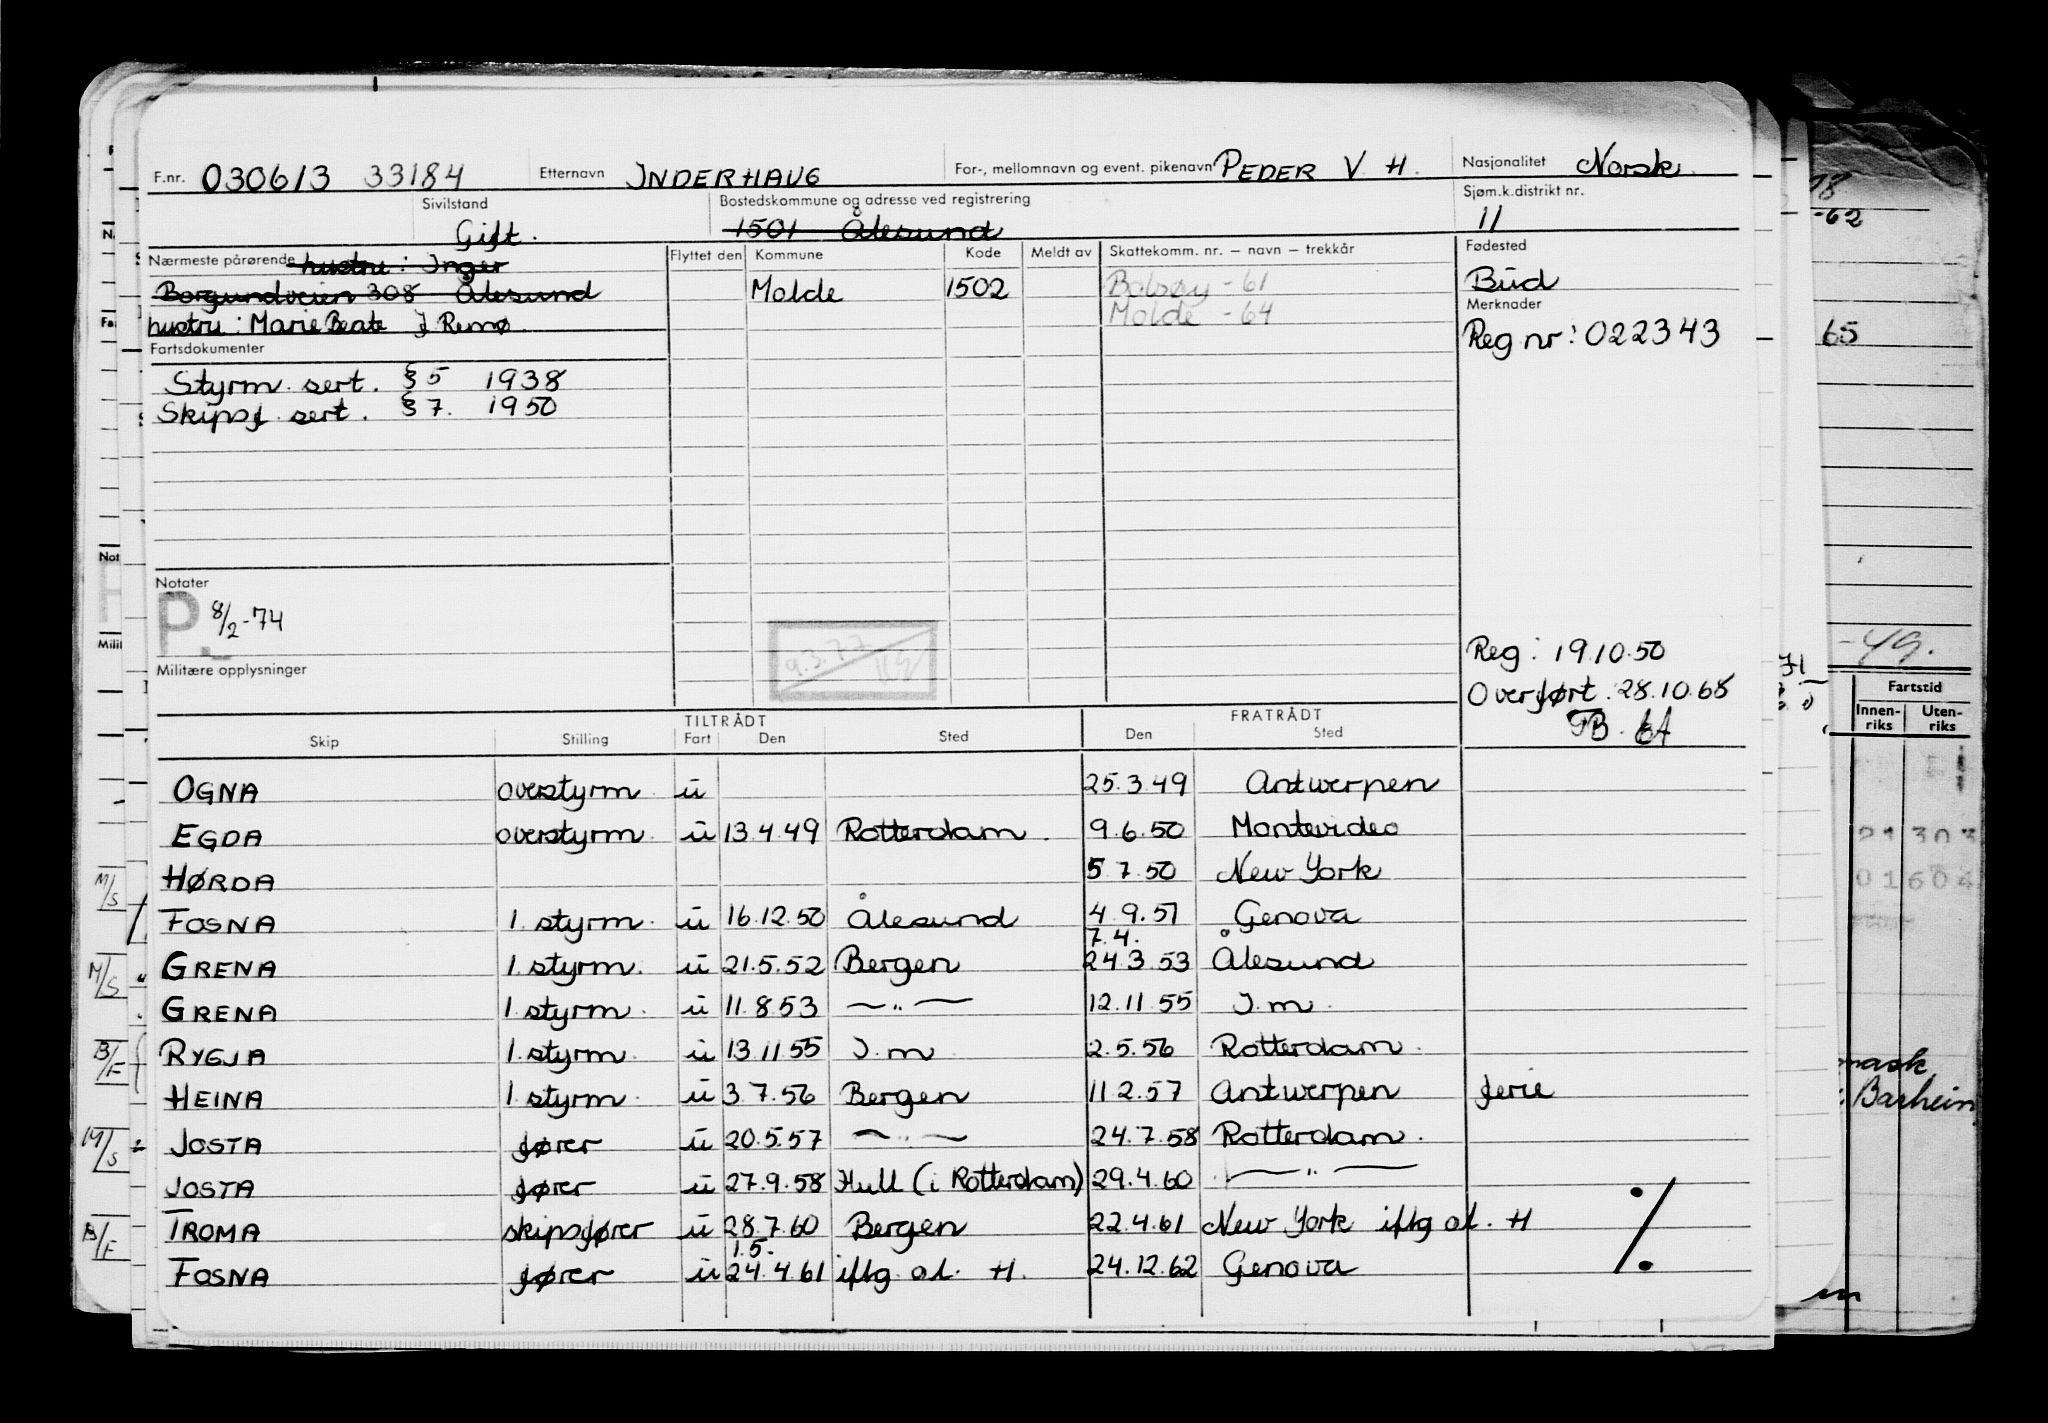 F.nr. 030613 33184 Etternavn INDERHAUG For-, mellomnavn og event. pikenavn PEDER V. H. Nasjonalitet Norsk.
Sivilstand Gift. Bostedskommune og adresse ved registrering 1501 Ålesund Sjøm.k.distrikt nr. 11
Nærmeste pårørende hustru: Inger Flyttet den Kommune Kode Meldt av Skattekomm. nr. — navn — trekkår Fødested
Borgundveien 308 Ålesund Molde 1502 Bolsøy - 61 Bud
hustru: Marie Beate J. Remø. Molde - 64 Merknader
Fartsdokumenter Reg nr: 022343
Styrm. sert. § 5 1938
Skipsf. sert. § 7. 1950
Notater
P. 8/2-74
9.3.77
Militære opplysninger
Reg: 19.10.50
Overført: 28.10.68
TILTRÅDT FRATRÅDT
Skip Stilling Fart Den Sted Den Sted
OGNA overstyrm. u 25.3.49 Antwerpen
EGDA overstyrm. u 13.4.49 Rotterdam. 9.6.50 Montevideo
HØRDA 5.7.50 New York
FOSNA 1. styrm. u 16.12.50 Ålesund 4.9.51 Genova
7.4.
GRENA 1. styrm. u 21.5.52 Bergen 24.3.53 Ålesund
GRENA 1. styrm. u 11.8.53 —"— 12.11.55 I.m.
RYGJA 1. styrm. u 13.11.55 I.m. 2.5.56 Rotterdam.
HEINA 1. styrm. u 3.7.56 Bergen 11.2.57 Antwerpen ferie
JOSTA fører u 20.5.57 —"— 24.7.58 Rotterdam.
JOSTA fører u 27.9.58 Hull (i Rotterdam) 29.4.60 —"—
TROMA skipsfører u 28.7.60 Bergen 22.4.61 New York iflg ol. H
1.5.
FOSNA fører u 24.4.61 iflg ol. H. 24.12.62 Genova
./.
-62
65
-49.
Fartstid
Innen-riks Uten-riks
21 303
01604
Barhein
M/S
M/S
B/F
M/S
B/F